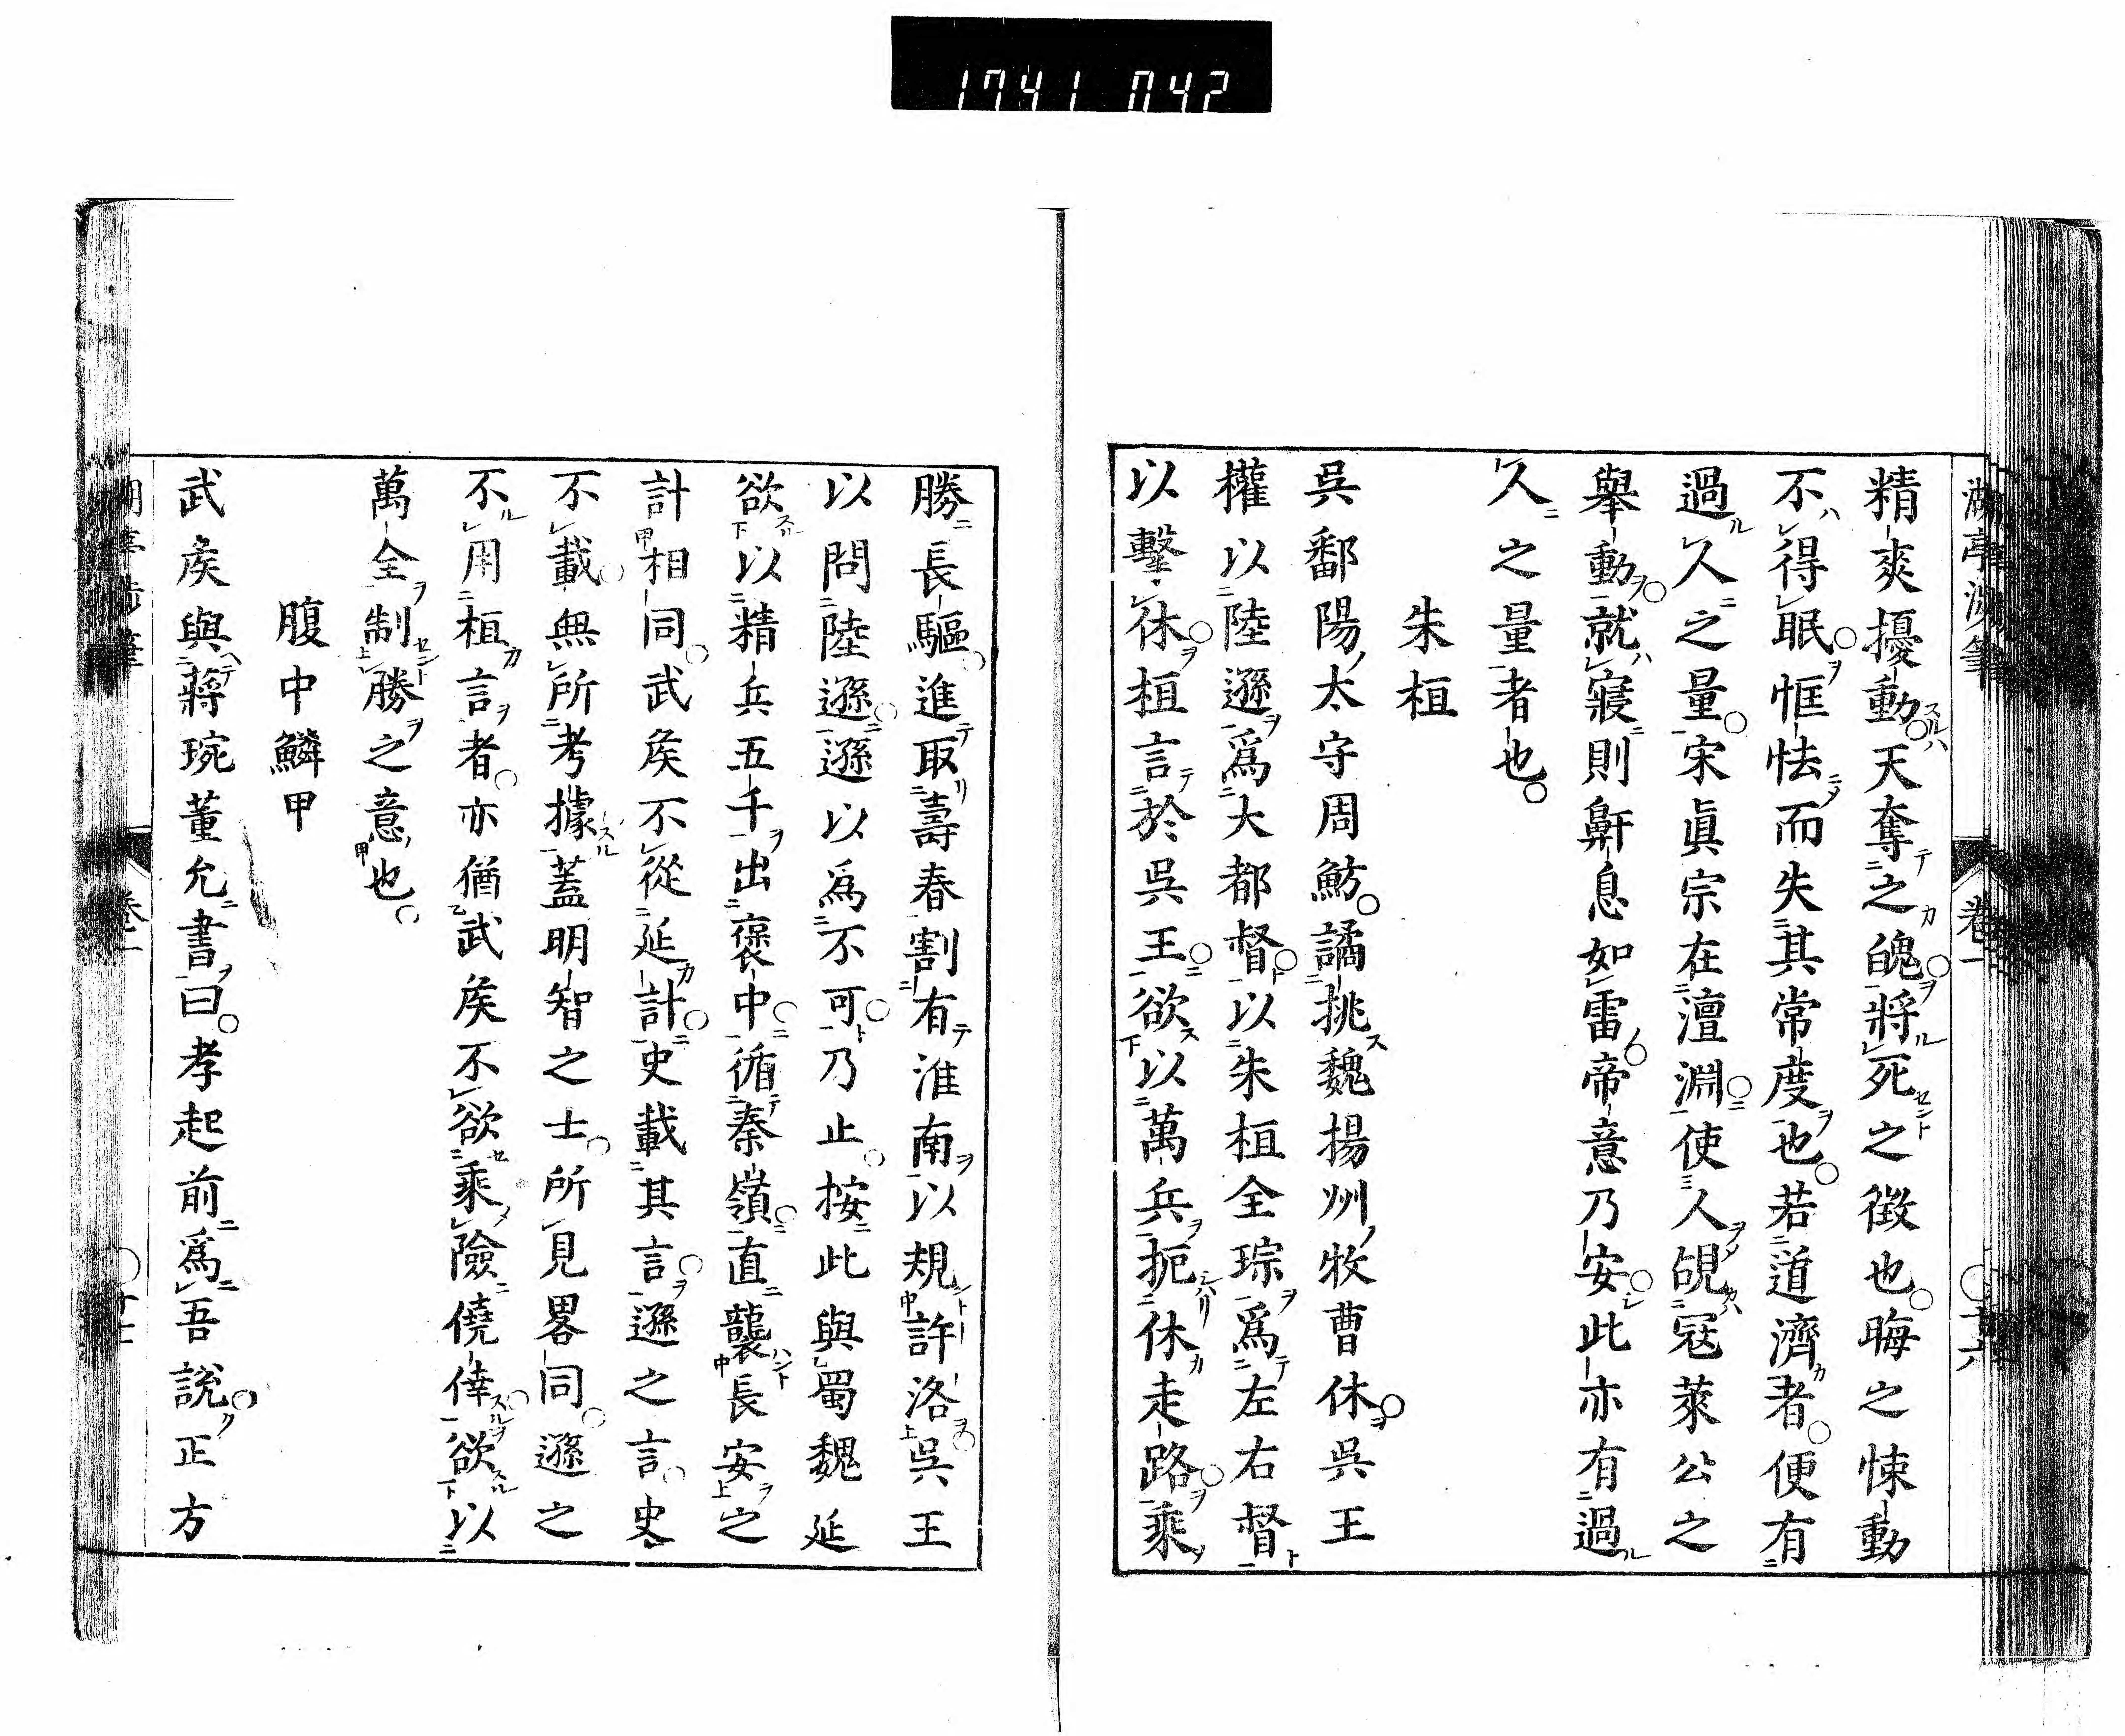 1741 042
湖亭涉筆
卷一
十六
精爽擾動天奪之魄將死之徵也晦之悚動
不得眠恇怯而失其常度也若道濟者便有
過人之量宋眞宗在澶淵使人覘冦萊公之
舉動就寢則鼾息如雷帝意乃安此亦有過
人之量者也
朱桓
吳鄱陽太守周魴譎挑魏揚州牧曹休吳王
權以陸遜爲大都督以朱桓全琮爲左右督
以擊休桓言於吳王欲以萬兵扼休走路乘
勝長驅進取壽春割有淮南以規許洛吳王
以問陸遜遜以爲不可乃止按此與蜀魏延
欲以精兵五千出褒中循秦嶺直襲長安之
計相同武矦不從延計史載其言遜之言史
不載無所考據蓋明智之士所見畧同遜之
不用桓言者亦猶武矦不欲乘險僥倖欲以
萬全制勝之意也
腹中鱗甲
武矦與蔣琬董允書曰孝起前爲吾說正方
卷一